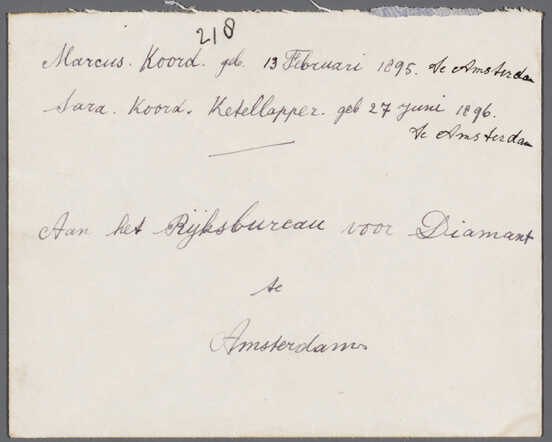 218
Marcus. Koord. geb. 13 Februari 1895. te Amsterdam
Sara. Koord. Ketellapper. geb 27 Juni 1896.
te Amsterdam
Aan het Rijksbureau voor Diamant
te
Amsterdam